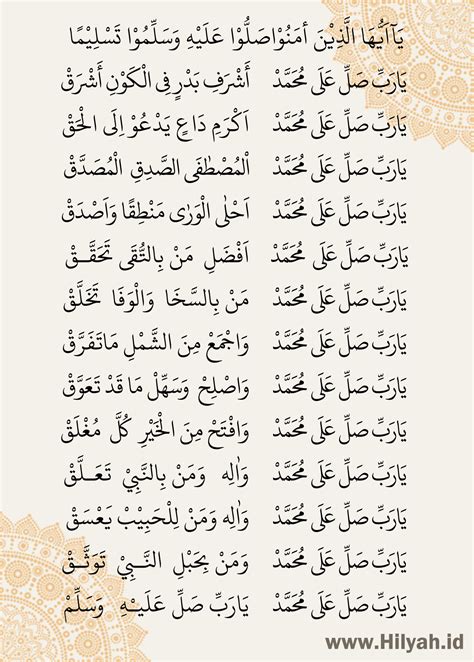 يَآاَيُّهَا الَّذِيْنَ أمَنُوْاصَلُّوْا عَلَيْهِ وَسَلِّمُوْا تَسْلِيْمًا
يَارَبِّ صَلِّ عَلَى مُحَمَّدْ اَشْرَفِ بَدْرٍ فِي الْكَوْنِ أَشْرَقْ
يَارَبِّ صَلِّ عَلَى مُحَمَّدْ اَكْرَمِ دَاعٍ يَدْعُوْ اِلَى الْحَقْ
يَارَبِّ صَلِّ عَلَى مُحَمَّدْ اَلْمُصْطَفَى الصَّدِقِ الْمُصَدَّقْ
يَارَبِّ صَلِّ عَلَى مُحَمَّدْ اَحْلَى الْوَرٰى مَنْطِقًا وَاَصْدَقْ
يَارَبِّ صَلِّ عَلَى مُحَمَّدْ اَفْضَلِ مَنْ بِالتُّقَى تَحَقَّقْ
يَارَبِّ صَلِّ عَلَى مُحَمَّدْ مَنْ بِالسَّخَا وَالْوَفَا تَخَلَّقْ
يَارَبِّ صَلِّ عَلَى مُحَمَّدْ وَاجْمَعْ مِنَ الشَّمْلِ مَاتَفَرَّقْ
يَارَبِّ صَلِّ عَلَى مُحَمَّدْ وَاصْلِحْ وَسَهِّلْ مَا قَدْ تَعَوَّقْ
يَارَبِّ صَلِّ عَلَى مُحَمَّدْ وَافْتَحْ مِنَ الْخَيْرِ كُلَّ مُغْلَقْ
يَارَبِّ صَلِّ عَلَى مُحَمَّدْ وَاٰلِهِ وَمَنْ بِالنَّبِيْ تَعَلَّقْ
يَارَبِّ صَلِّ عَلَى مُحَمَّدْ وَاٰلِهِ وَمَنْ لِلْحَبِيْبْ يَعْسَقْ
يَارَبِّ صَلِّ عَلَى مُحَمَّدْ وَمَنْ بِحَبْلِ النَّبِيْ تَوَثَّقْ
يَارَبِّ صَلِّ عَلَى مُحَمَّدْ يَارَبِّ صَلِّ عَلَيْهِ وَسَلِّمْ
www.Hilyah.id